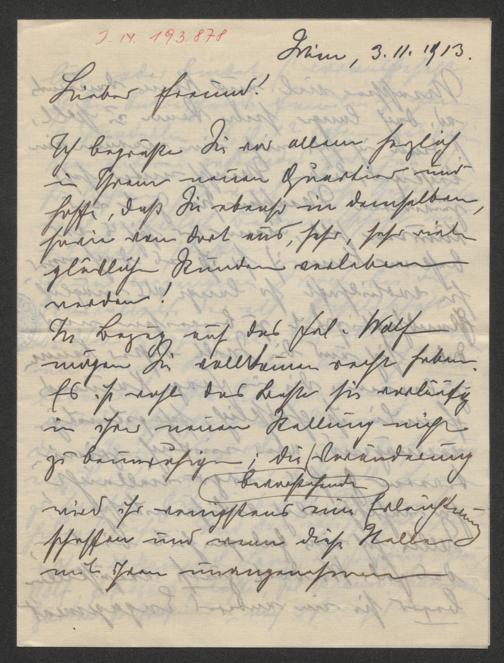 I. N. 193.878
Wien, 3. 11. 1913.
Lieber Freund!
Ich begrüße Sie vor allem herzlich
in Ihrem neuen Quartier und
hoffe, daß Sie ebenso in demselben,
sowie von dort aus, sehr, sehr viele
glückliche Stunden verleben
werden!
In Bezug auf das Frl. Wolf
mögen Sie vollkommen recht haben.
Es ist wohl das Beste sie vorläufig
in ihrer neuen Stellung nicht
zu beunruhigen; die Veränderung
bevorstehende
wird ihr wenigstens eine Erleichterung
schaffen und wenn diese Stelle
mit ihren unangenehmen